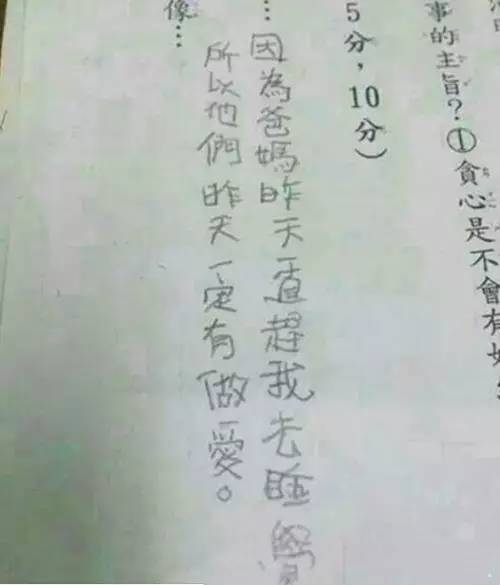 事的主旨?①貪心是不會有
5分,10分)
…
因為爸媽昨天一直趕我去睡覺
所以他們昨天一定有做愛。
像…